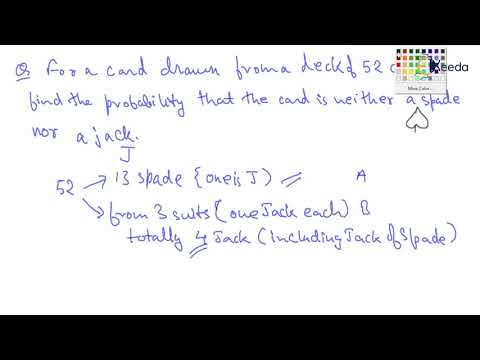 Q For a card drawn from a deck of 52 c
Keeda
More Color...
find the probability that the card is neither a spade
nor a jack.
J
52 → 13 spade {one is J) A
→ from 3 suits (one Jack each) B
totally 4 Jack (including Jack of Spade)